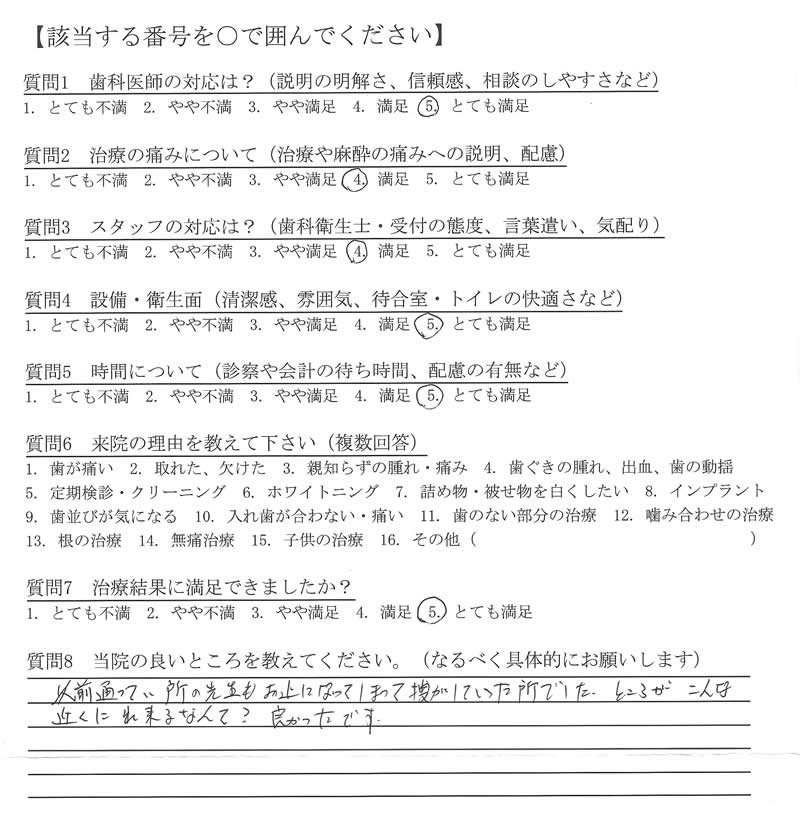 【該当する番号を〇で囲んでください】
質問1 歯科医師の対応は？（説明の明解さ、信頼感、相談のしやすさなど）
1. とても不満 2. やや不満 3. やや満足 4. 満足 5. とても満足
質問2 治療の痛みについて（治療や麻酔の痛みへの説明、配慮）
1. とても不満 2. やや不満 3. やや満足 4. 満足 5. とても満足
質問3 スタッフの対応は？（歯科衛生士・受付の態度、言葉遣い、気配り）
1. とても不満 2. やや不満 3. やや満足 4. 満足 5. とても満足
質問4 設備・衛生面（清潔感、雰囲気、待合室・トイレの快適さなど）
1. とても不満 2. やや不満 3. やや満足 4. 満足 5. とても満足
質問5 時間について（診察や会計の待ち時間、配慮の有無など）
1. とても不満 2. やや不満 3. やや満足 4. 満足 5. とても満足
質問6 来院の理由を教えて下さい（複数回答）
1. 歯が痛い 2. 取れた、欠けた 3. 親知らずの腫れ・痛み 4. 歯ぐきの腫れ、出血、歯の動揺
5. 定期検診・クリーニング 6. ホワイトニング 7. 詰め物・被せ物を白くしたい 8. インプラント
9. 歯並びが気になる 10. 入れ歯が合わない・痛い 11. 歯のない部分の治療 12. 噛み合わせの治療
13. 根の治療 14. 無痛治療 15. 子供の治療 16. その他（ ）
質問7 治療結果に満足できましたか？
1. とても不満 2. やや不満 3. やや満足 4. 満足 5. とても満足
質問8 当院の良いところを教えてください。（なるべく具体的にお願いします）
以前通ってい所の先生もお止になってしまって捜がしていた所でした。ところがこんな
近くに出来るなんて？良かったです。